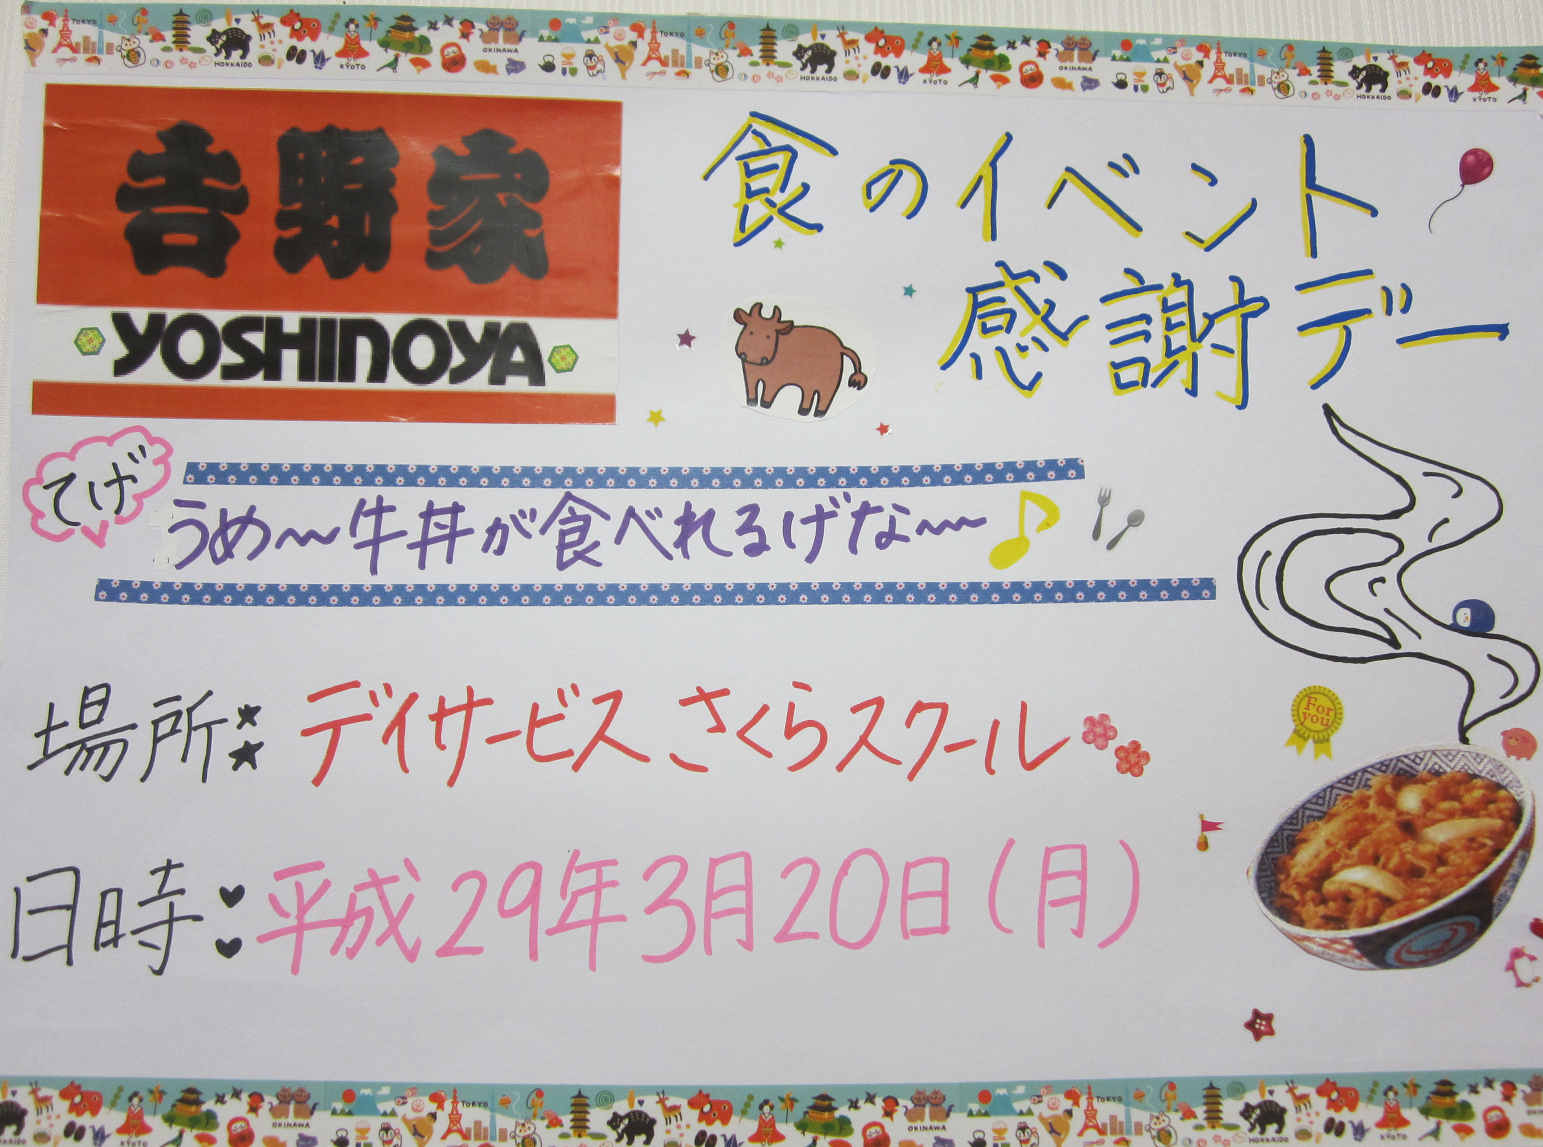 吉野家
YOSHINOYA
食のイベント
感謝デー
てげ
うめ〜牛丼が食べれるげな〜♪
場所: デイサービス さくらスクール
For you
日時: 平成29年3月20日(月)
TOKYO
HOKKAIDO
KYOTO
OKINAWA